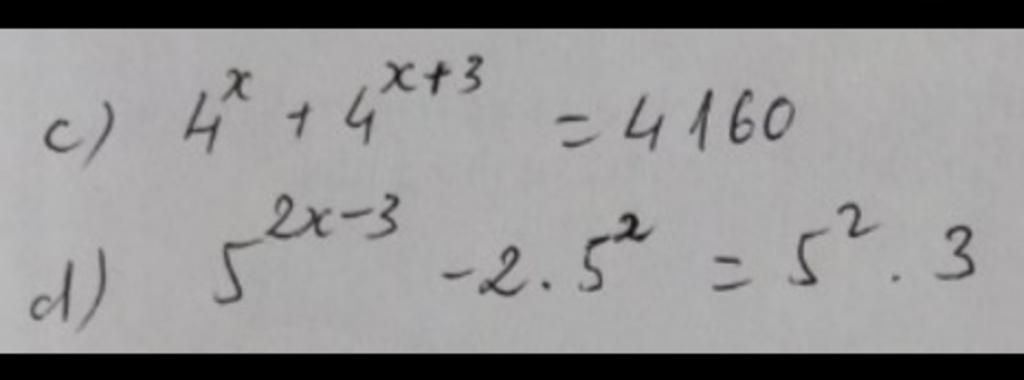 c) 4^x + 4^{x+3} = 4160
d) 5^{2x-3} - 2 . 5^2 = 5^2 . 3